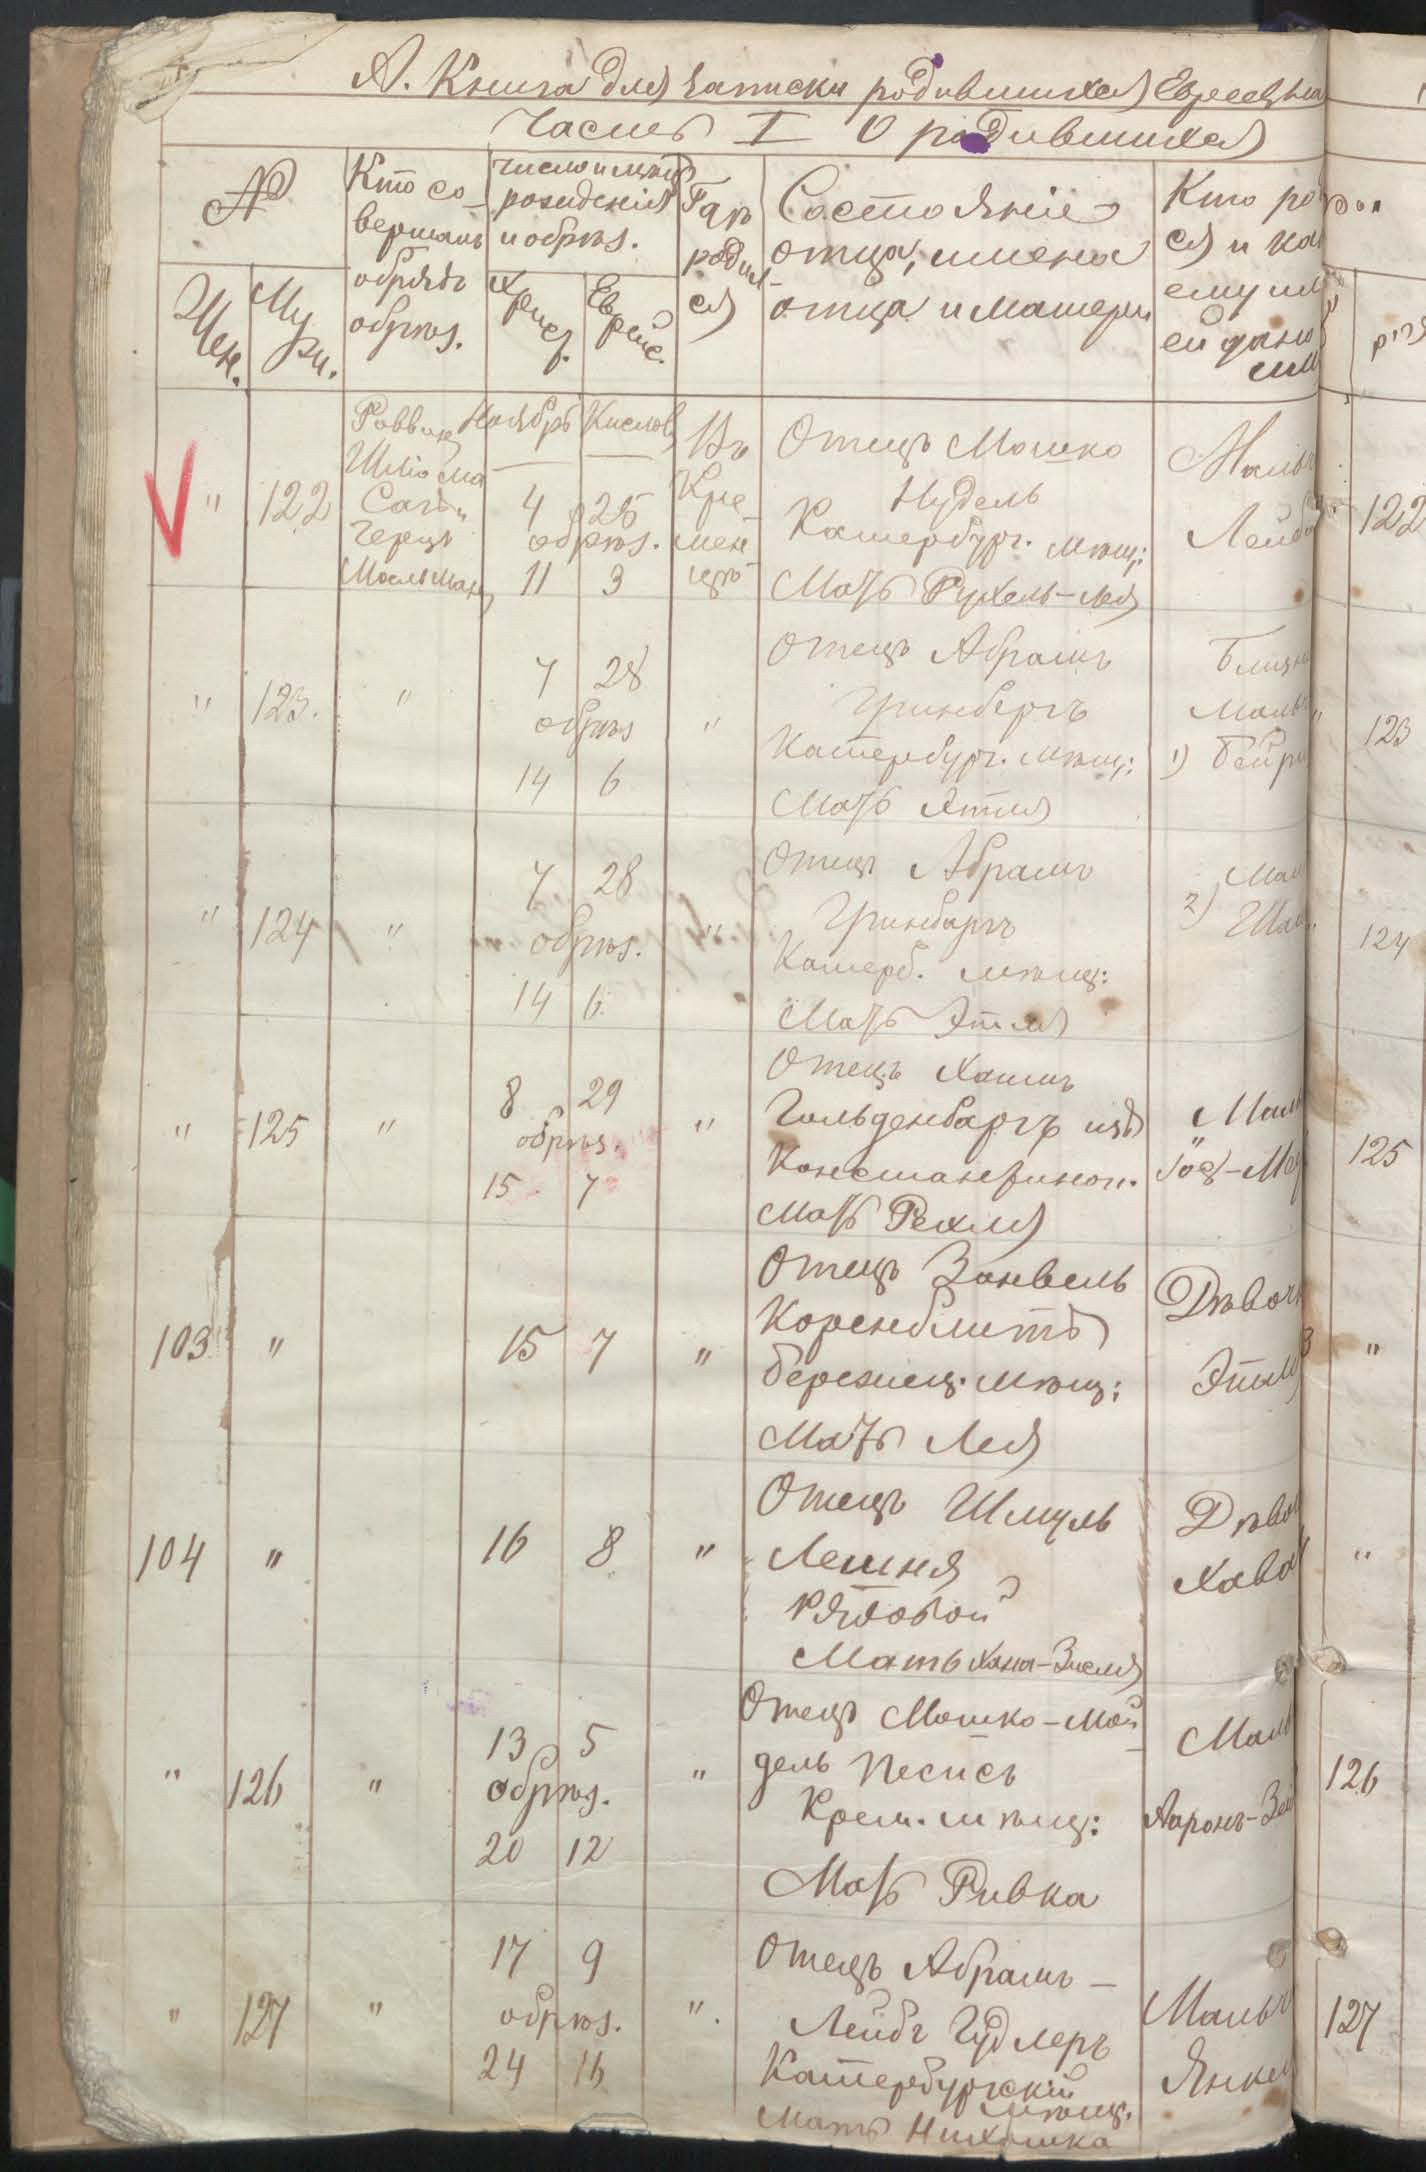 А. Книга для записки родившихся Евреевъ на
Часть I О родившихся
№
Кто со-
вершалъ
обрядъ
обрѣз.
Число и мѣсяц
рожденія
и обрѣз.
Гдѣ
родил-
ся
Состояніе
отца, имена
отца и матери
Кто ро
ся и ка
ему ил
ей дано
имя
Жен.
Му
жи.
Христ.
Еврейс.
" 122
Раввинъ
Шліома
герцъ
Ноябрь Кислев
4 25
обрѣз.
11 3
Въ
Кре-
мен
цѣ
Отецъ Мошко
Нудель
Катербург. мѣщ:
Мать Рухель-Лея
Мальч
Лейб
122
" 123. "
7 28
обрѣз
14 6
"
Отецъ Абрамъ
Гринбергъ
Катербург. мѣщ:
Мать Этля
Близн
Мальч
1) Бейр
123
" 124 "
7 28
обрѣз.
14 6
"
Отецъ Абрамъ
Гринбергъ
Катерб. мѣщ:
Мать Этля
Мал
2) Ша
124
" 125 "
8 29
обрѣз.
15 7
"
Отецъ Хаимъ
Гольденбаргъ изъ
Константинов.
Мать Рехля
Маль
125
103 "
15 7
"
Отецъ Занвель
Коренблитъ
Бережец. мѣщ:
Мать Лея
Дѣвочк
Этля
"
104 "
16 8
"
Отецъ Шмуль
Лешня
Рядовой
Мать Хана-Зисля
Дѣвоч
Хава
"
" 126 "
13 5
обрѣз.
20 12
"
Отецъ Мошко-Мой
дель Песисъ
Крем. мѣщ:
Мать Ривка
Маль
Ааронъ-Зей
126
" 127 "
17 9
обрѣз.
24 16
"
Отецъ Абрамъ-
Лейбъ Гудлеръ
Катербургскій
мѣщ.
Мать
Мальч
Янкел
127